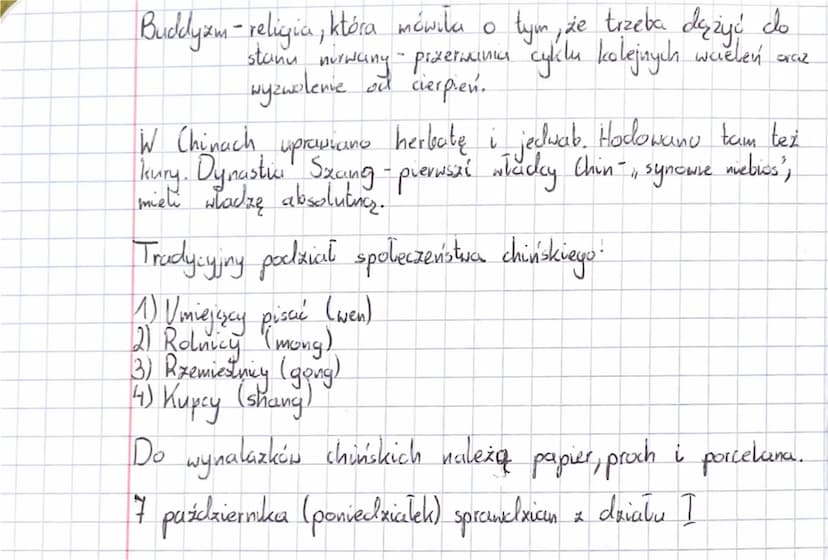 Buddyzm - religia, która mówiła o tym, że trzeba dążyć do
stanu nirwany - przerwania cyklu kolejnych wcieleń oraz
wyzwolenie od cierpień.
W Chinach uprawiano herbatę i jedwab. Hodowano tam też
kury. Dynastia Szang - pierwsi władcy Chin - „synowie niebios”,
mieli władzę absolutną.
Tradycyjny podział społeczeństwa chińskiego:
1) Umiejący pisać (wen)
2) Rolnicy (mong)
3) Rzemieślnicy (gong)
4) Kupcy (shang)
Do wynalazków chińskich należą papier, proch i porcelana.
7 października (poniedziałek) sprawdzian z działu I